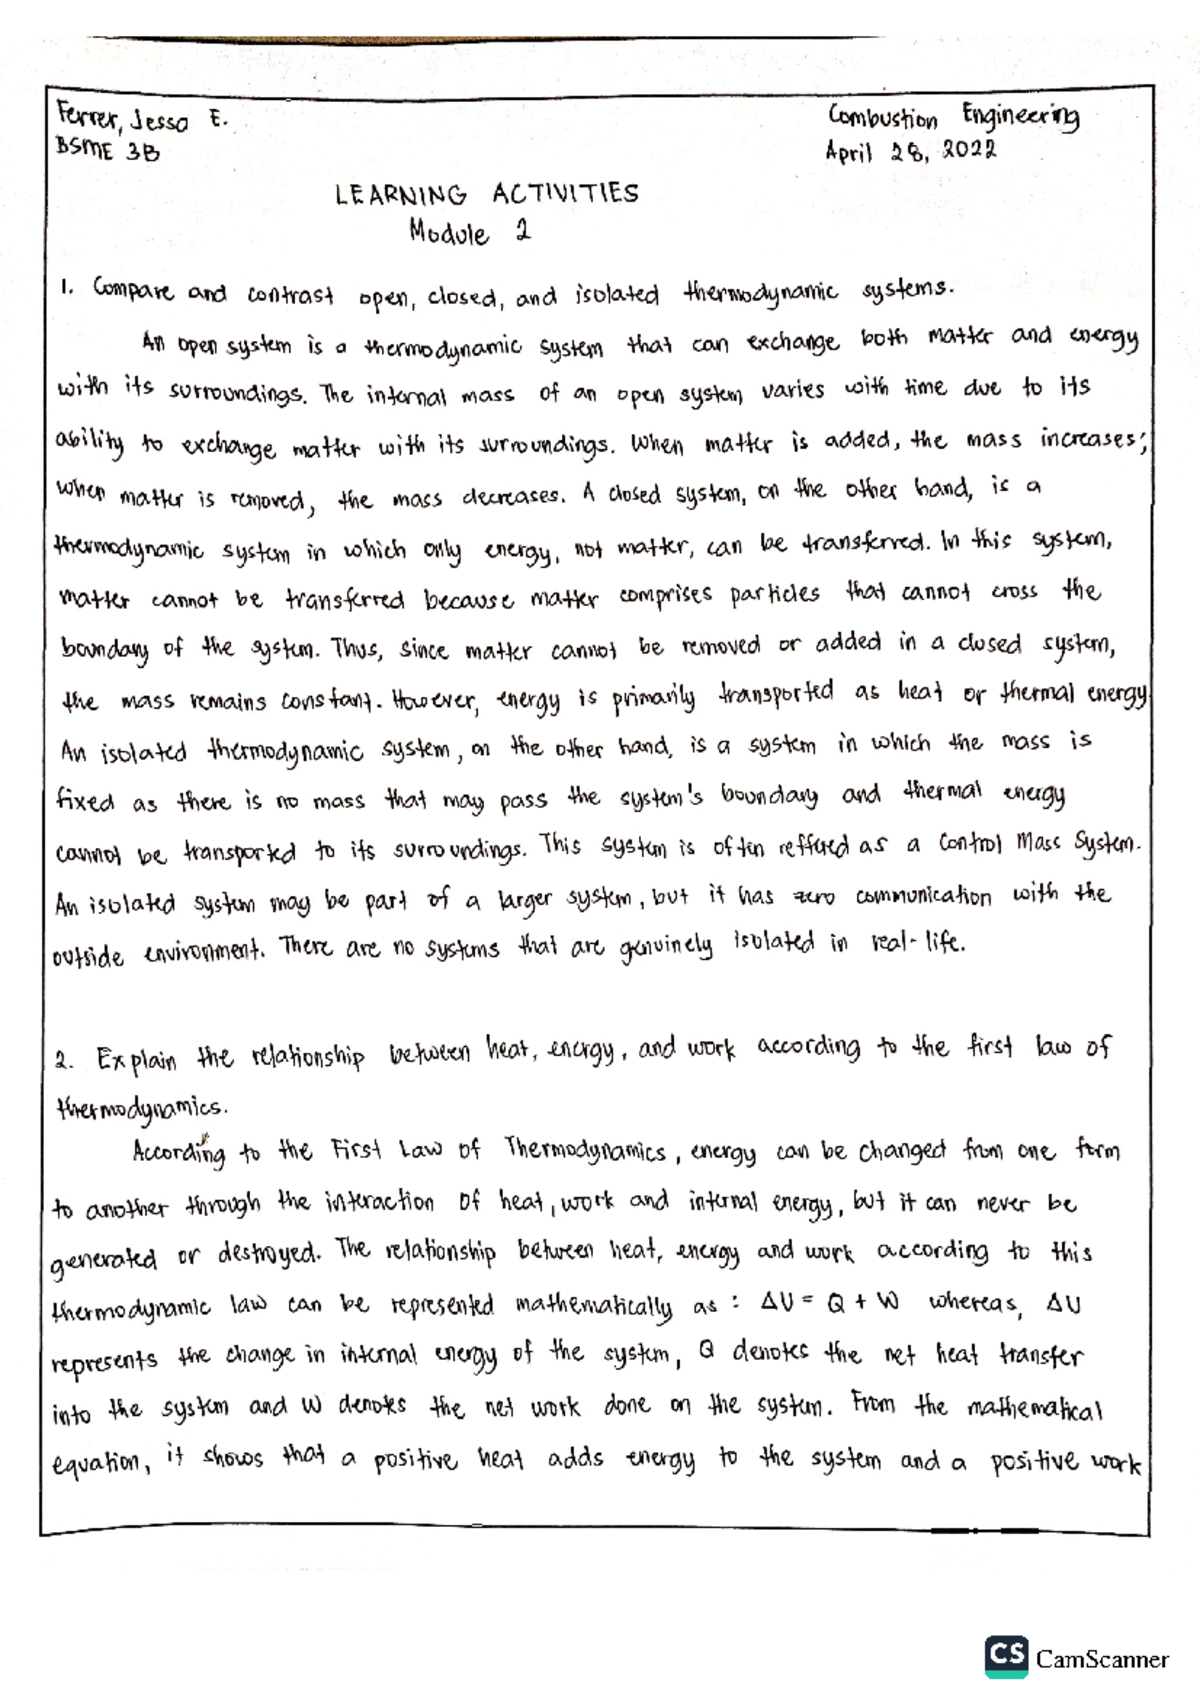 Ferrer, Jessa E.
Combustion Engineering
BSME 3B
April 28, 2022
LEARNING ACTIVITIES
Module 2
1. Compare and contrast open, closed, and isolated thermodynamic systems.
An open system is a thermodynamic system that can exchange both matter and energy
with its surroundings. The internal mass of an open system varies with time due to its
ability to exchange matter with its surroundings. When matter is added, the mass increases;
when matter is removed, the mass decreases. A closed system, on the other hand, is a
thermodynamic system in which only energy, not matter, can be transferred. In this system,
matter cannot be transferred because matter comprises particles that cannot cross the
boundary of the system. Thus, since matter cannot be removed or added in a closed system,
the mass remains constant. However, energy is primarily transported as heat or thermal energy.
An isolated thermodynamic system, on the other hand, is a system in which the mass is
fixed as there is no mass that may pass the system's boundary and thermal energy
cannot be transported to its surroundings. This system is often reffered as a Control Mass System.
An isolated system may be part of a larger system, but it has zero communication with the
outside environment. There are no systems that are genuinely isolated in real-life.
2. Explain the relationship between heat, energy, and work according to the first law of
thermodynamics.
According to the First Law of Thermodynamics, energy can be changed from one form
to another through the interaction of heat, work and internal energy, but it can never be
generated or destroyed. The relationship between heat, energy and work according to this
thermodynamic law can be represented mathematically as: ΔU = Q + W whereas, ΔU
represents the change in internal energy of the system, Q denotes the net heat transfer
into the system and W denotes the net work done on the system. From the mathematical
equation, it shows that a positive heat adds energy to the system and a positive work
CS CamScanner